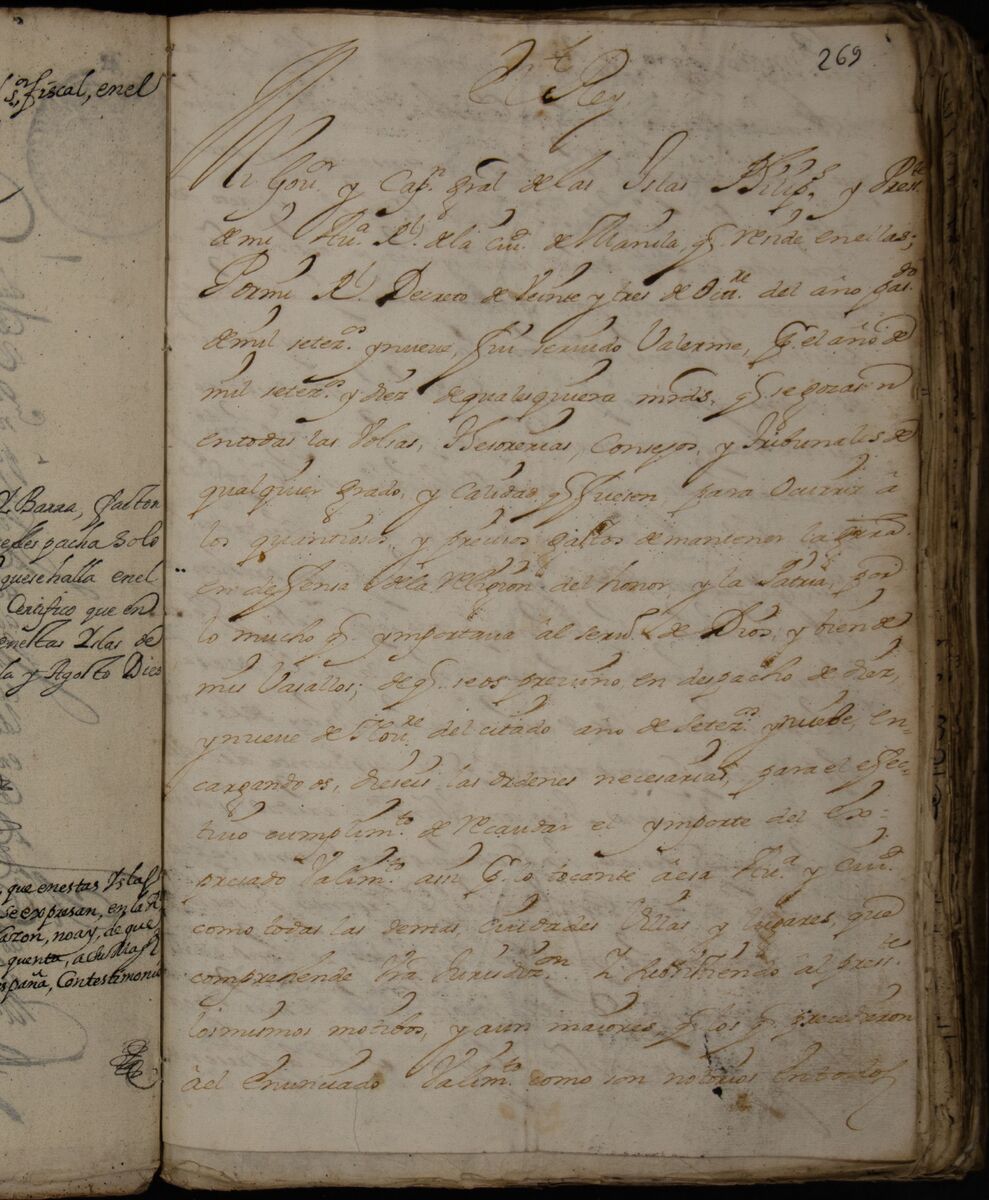 s.or fiscal, en el
Barra, factor
se despacha solo
que se halla en el
Certifico que en
en estas Yslas de
la y Agosto Diez
que en estas Yslas
se expresan, en la R.
razon, no ay, de que
quenta, a su Mag.d
españa, Con testimonio
269
El Rey
Mi Gou.or y Cap.n gral de las Islas Philip.s y Presi.te
de mi Au.a R.l de la ciu.d de Manila, q̃ reside en ellas;
Por mi R.l Decreto de Veinte y tres de Octu.re del año pas.do
de mil setez.os y nueve, fui seruido Valerme, p.r el año de
mil setez.os y diez de qualesquiera mrds. q̃ se gozasen
en todas las Volsas, Thesorerias, Consejos, y Tribunales de
qualquier grado, y calidad q̃ fuesen, para Ocurrir â
los quantiosos y precisos gastos de mantener la guerra
en defensa de la religion del honor, y la Patria, por
lo mucho q̃ ymportaua âl seru.o de Dios, y bien de
mis Vasallos; de q̃ se os preuino, en despacho de diez,
y nueve de Nou.re del citado año de setez.os y nueve, en-
cargando os, dieseis las ordenes necesarias, para el efec-
tiuo cumplim.to de recaudar el ymporte del ex-
presado Valim.to asi p.r lo tocante à esa Au.a y Ciu.d
como todas las demas, ciudades Villas y lugares, que
comprehende Vra Jurisdiz.on Y subsistiendo âl pres.te
los mismos motibos, y aun maiores, q̃ los q̃ precedieron
âel enunciado Valim.to como son notorios En todos